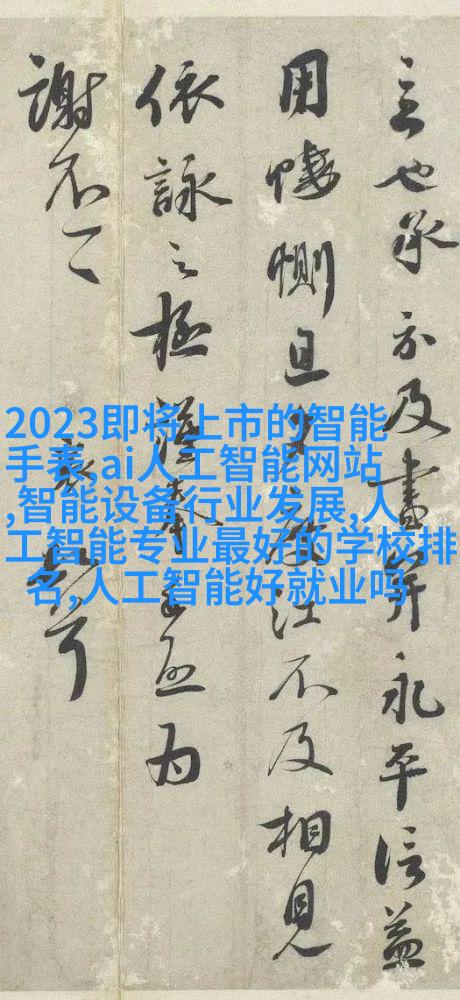 2023即将上市的智能
手表,ai人工智能网站
,智能设备行业发展,人
工智能专业最好的学校排
名,人工智能好就业吗
也承示及書并永平信益
用悽惻且江不及相見
依詠之極為
謝不一